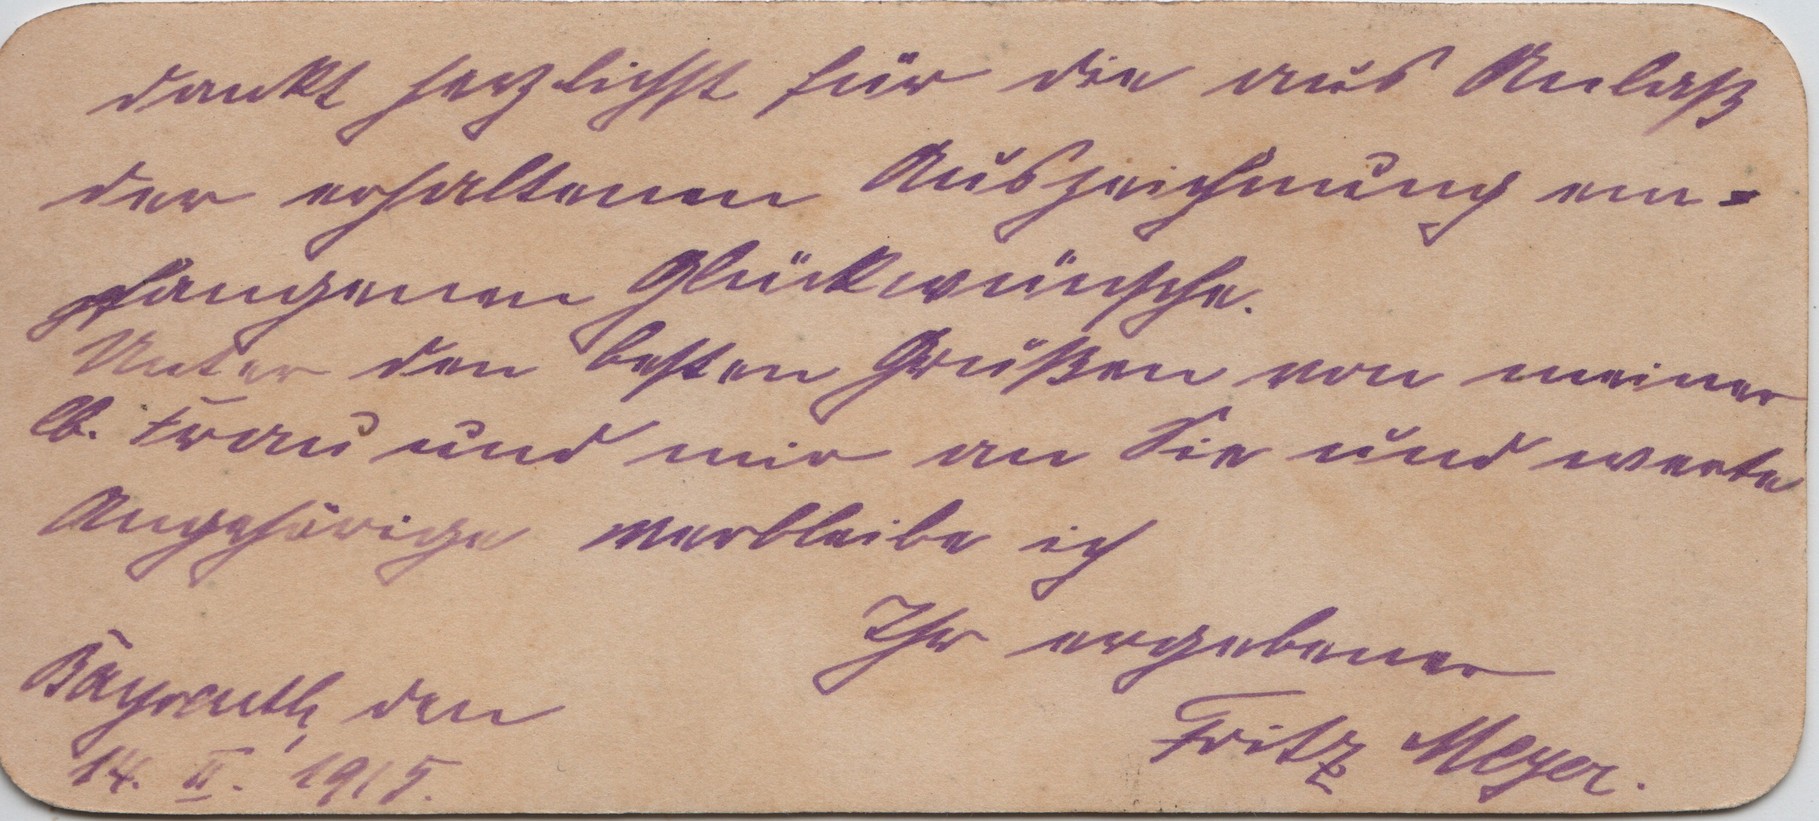 dankt herzlichst für die aus Anlaß
der erhaltenen Auszeichnung em=
pfangenen Glückwünsche.
Unter den besten Grüßen von meiner
lb. Frau und mir an Sie und werte
Angehörige verbleibe ich
Ihr ergebener
Fritz Meyer.
Bayreuth, den
14. II. 1915.